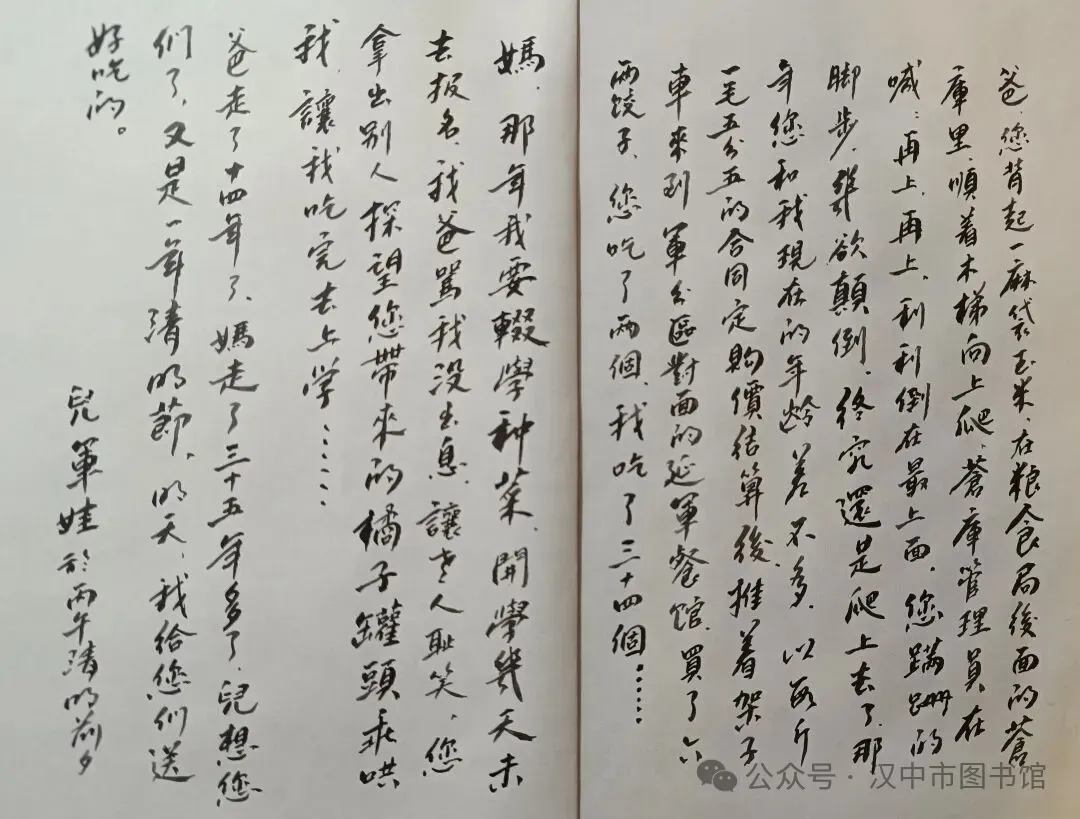 爸、您背起一麻袋玉米、在粮食局後面的蒼
庫里、順着木梯向上爬、蒼庫管理員在
喊：再上、再上、利利倒在最上面、您蹣跚的
脚步、幾欲顛倒、終究還是爬上去了、那
年您和我現在的年齡差不多、以每斤
一毛五分五的合同定購價结算後、推着架子
車來到軍分區對面的延軍餐馆、買了六
兩餃子、您吃了兩個、我吃了三十四個……
媽、那年我要輟學种菜、開學幾天未
去报名、我爸罵我没出息、讓老人耻笑、您
拿出别人探望您帶來的橘子罐頭乖哄
我、讓我吃完去上学……
爸走了十四年了、媽走了三十五年多了、兒想您
们了、又是一年清明節、明天、我给您们送
好吃的。
兒軍娃於丙午清明前夕
公众号·汉中市图书馆